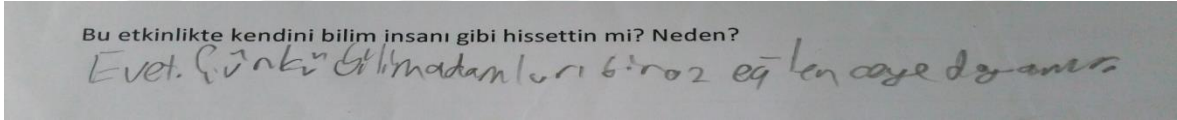 Bu etkinlikte kendini bilim insanı gibi hissettin mi? Neden?
Evet. Çünkü bilimadamları biraz eğlenceye dayanır